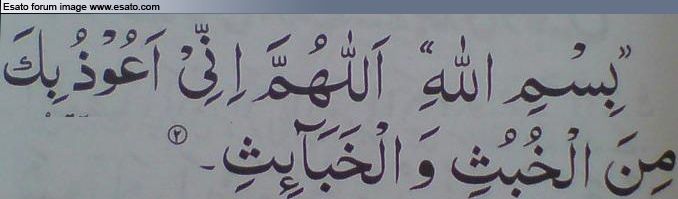 Esato forum image www.esato.com
”بِسْمِ اللهِ“ اَللّٰهُمَّ اِنِّیْ اَعُوْذُ بِكَ
مِنَ الْخُبُثِ وَالْخَبَآئِثِ۔ ②